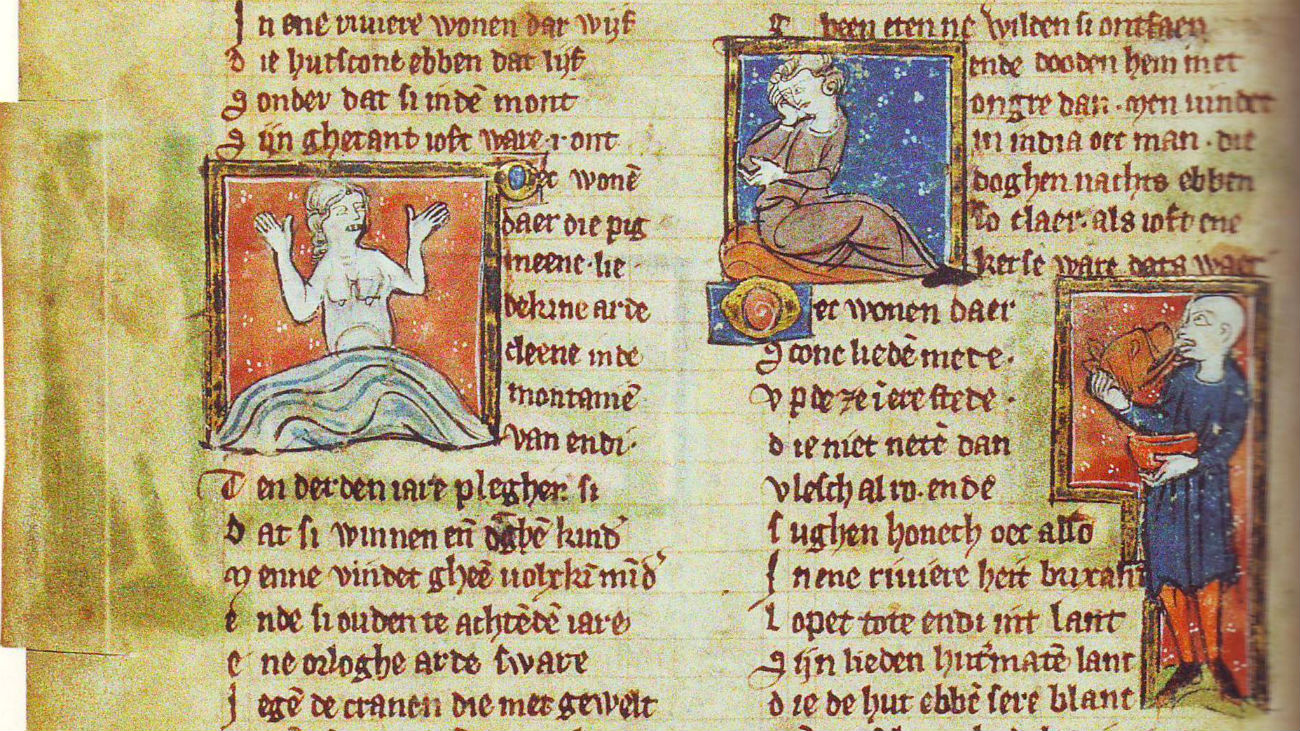 In ene riviere wonen dar wijf
die hutscone ebben dat lijf
Sonder dat si in dē mont
Sijn ghetant ioft ware .i. ont
Oec wonē
daer die pig
meene. lie
dekine arde
cleene inde
montanïē
van endi.
Ten derden iare pleghen si
Dat si winnen eñ kind'
Menne vindet gheē volxkī mīd'
ende si ouden te achtēdē iare
ene orloghe arde sware
Jegē de cranen die met gewelt
Gheen eten ne wilden si ontfaen
ende dooden hem met
ongre dan. Men vindet
in india oec man. die
doghen nachts ebben
so claer. als ioft ene
kerse ware dats waer
Oec wonen daer
Scone liedē met e.
vp de stede.
die niet netē dan
vlesch al ro. ende
sughen honech oec also
In ene riviere heit
Lopet tote endi int lant
Sijn lieden hut'matē lanc
die de hut ebbē sere blanc